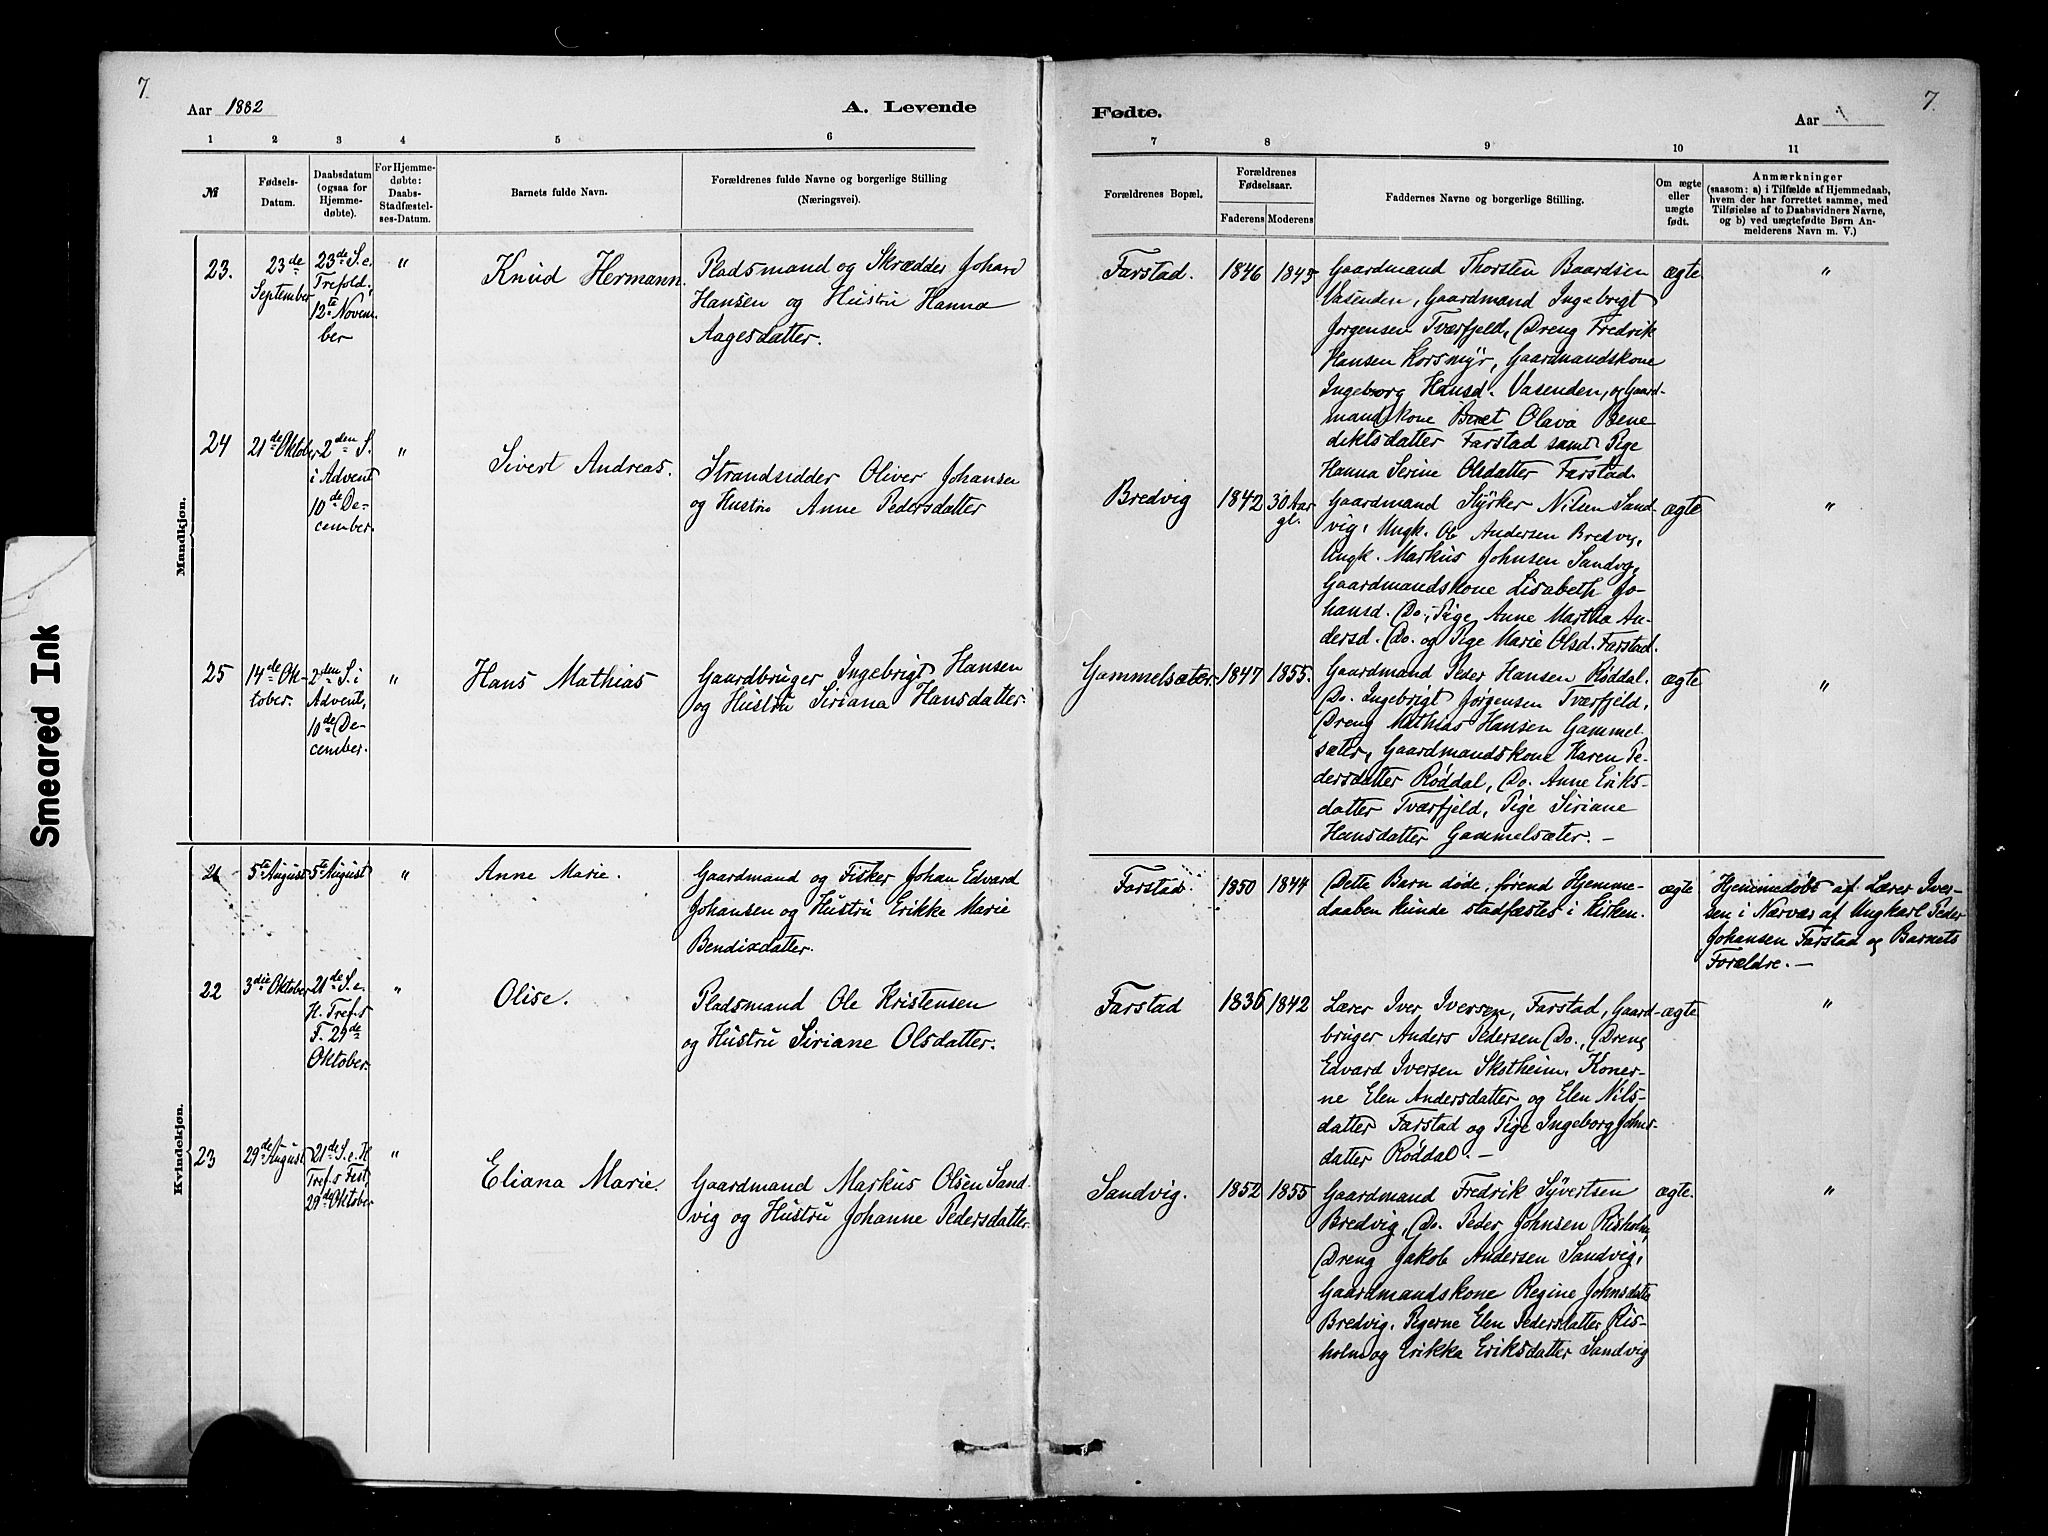 7.
Aar 1882
A. Levende
1 2 3 4 5 6
№
Fødsels-
Datum.
Daabsdatum
(ogsaa for
Hjemme-
døbte).
For Hjemme-
døbte:
Daabs-
Stadfæstel-
ses-Datum.
Barnets fulde Navn.
Forældrenes fulde Navne og borgerlige Stilling
(Næringsvei).
Mandkjøn.
23.
23de
September
23de S. e.
Trefold.,
12te Novem-
ber
"
Knud Hermann.
Pladsmand og Skrædder Johan
Hansen og Hustru Hanna
Aagesdatter.
24
21de Oktober
2den S.
i Advent
10de De-
cember.
"
Sivert Andreas.
Strandsidder Oliver Johansen
og Hustru Anne Pedersdatter
25
14de Ok-
tober.
2den S. i
Advent,
10de De-
cember.
"
Hans Mathias
Gaardbruger Ingebrigt Hansen
og Hustru Siriana Hansdatter.
Kvindekjøn.
21
5te August
5te August
"
Anne Marie.
Gaardmand og Fisker Johan Edvard
Johansen og Hustru Erikke Marie
Bendixdatter.
22
3die Oktober
21de S. e.
H. Tref.s
F. 29de
Oktober.
"
Olise.
Pladsmand Ole Kristensen
og Hustru Siriane Olsdatter.
23
29de August
21de S. e. H
Tref.s Fest
29de Oktober
"
Eliana Marie.
Gaardmand Markus Olsen Sand-
vig og Hustru Johanne Pedersdatter.
Fødte.
Aar
7.
7 8 9 10 11
Forældrenes Bopæl.
Forældrenes
Fødselsaar.
Faderens
Moderens
Faddernes Navne og borgerlige Stilling.
Om ægte
eller
uægte
født.
Anmærkninger
(saasom: a) i Tilfælde af Hjemmedaab,
hvem der har forrettet samme, med
Tilføielse af to Daabsvidners Navne,
og b) ved uægtefødte Børn An-
melderens Navn m. V.)
Farstad.
1846
1843
Gaardmand Thorsten Baardsen
Vasenden, Gaardmand Ingebrigt
Jørgensen Tværfjeld, Dreng Fredrik
Hansen Korsmyr, Gaardmandskone
Ingeborg Hansd. Vasenden, og Gaard-
mandskone Beret Olava Bene
diktsdatter Farstad samt Pige
Hanna Serine Olsdatter Farstad.
ægte
"
Bredvig
1842
30 Aar
gl.
Gaardmand Styrker Nilsen Sand-
vig, Ungk. Ole Andersen Bredvig,
Ungk. Markus Johnsen Sandvig,
Gaardmandskone Lisabeth Jo-
hansd. Do., Pige Anne Martha An-
dersd. Do. og Pige Marie Olsd. Farstad.
ægte
"
Gammelsæter.
1847
1855.
Gaardmand Peder Hansen Røddal.
Do. Ingebrigt Jørgensen Tværfjeld.
Dreng Mathias Hansen Gammel
sæter, Gaardmandskone Karen Pe-
dersdatter Røddal, Do. Anne Eriks-
datter Tværfjeld, Pige Siriane
Hansdatter Gammelsæter. -
ægte
"
Farstad.
1850
1844
Dette Barn døde, førend Hjemme-
daaben kunde stadfæstes i Kirken.
ægte
Hjemmedøbt af Lærer Iver-
sen i Nærvær af Ungkarl Peder
Johansen Farstad og Barnets
Forældre. -
Farstad
1836
1842
Lærer Iver Iversen, Farstad, Gaard-
bruger Anders Pedersen Do., Dreng
Edvard Iversen Skotheim, Koner-
ne Elen Andersdatter og Elen Nils-
datter Farstad og Pige Ingeborg Johns-
datter Røddal. -
ægte
"
Sandvig.
1852
1855
Gaardmand Fredrik Syvertsen
Bredvig, Do. Peder Johnsen Risholm,
Dreng Jakob Andersen Sandvig,
Gaardmandskone Regine Johnsdatter
Bredvig. Pigerne Elen Pedersdatter Ris-
holm og Erikka Eriksdatter Sandvig
ægte.
"
Smeared Ink